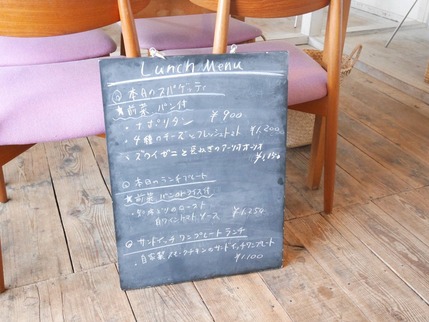 Lunch Menu
本日のスパゲッティ
★前菜 パン付
・ナポリタン ¥900
・4種のチーズとフレッシュトマト ¥1,200
・ズワイガニと のアーリオオーリオ
¥1,150
本日のランチプレート
★前菜 パンorライス付
のロースト
白ワイントマトソース ¥1,250
サンドイッチワンプレートランチ
・自家製スモークチキンのサンドイッチワンプレート
¥1,100